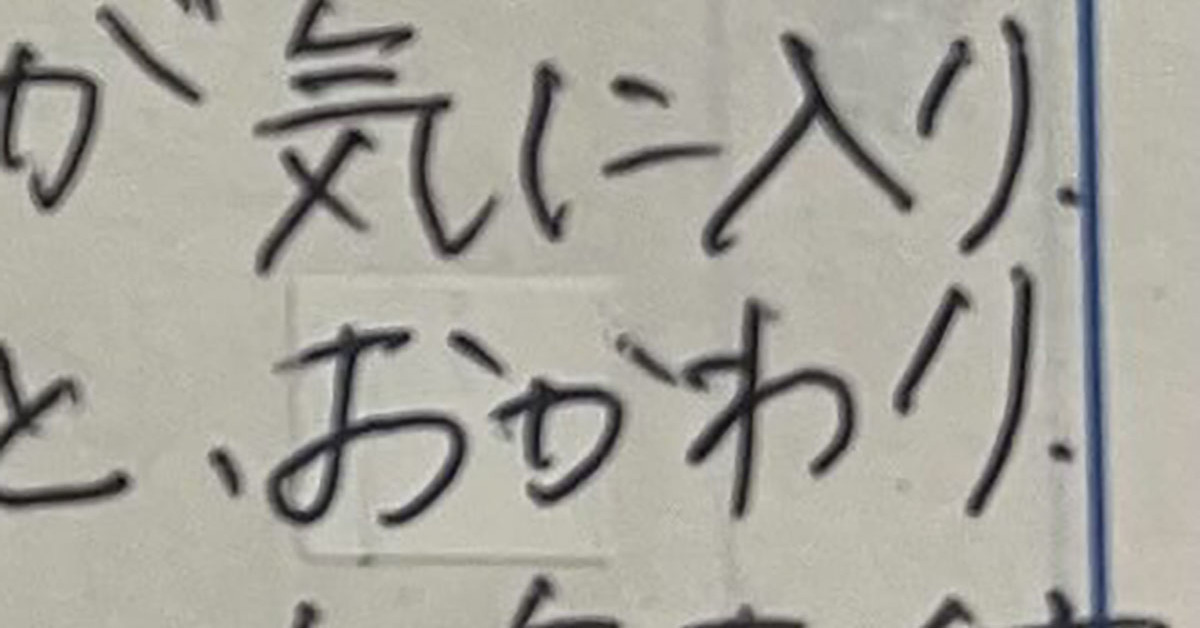 が気に入り.
と、おかわり.